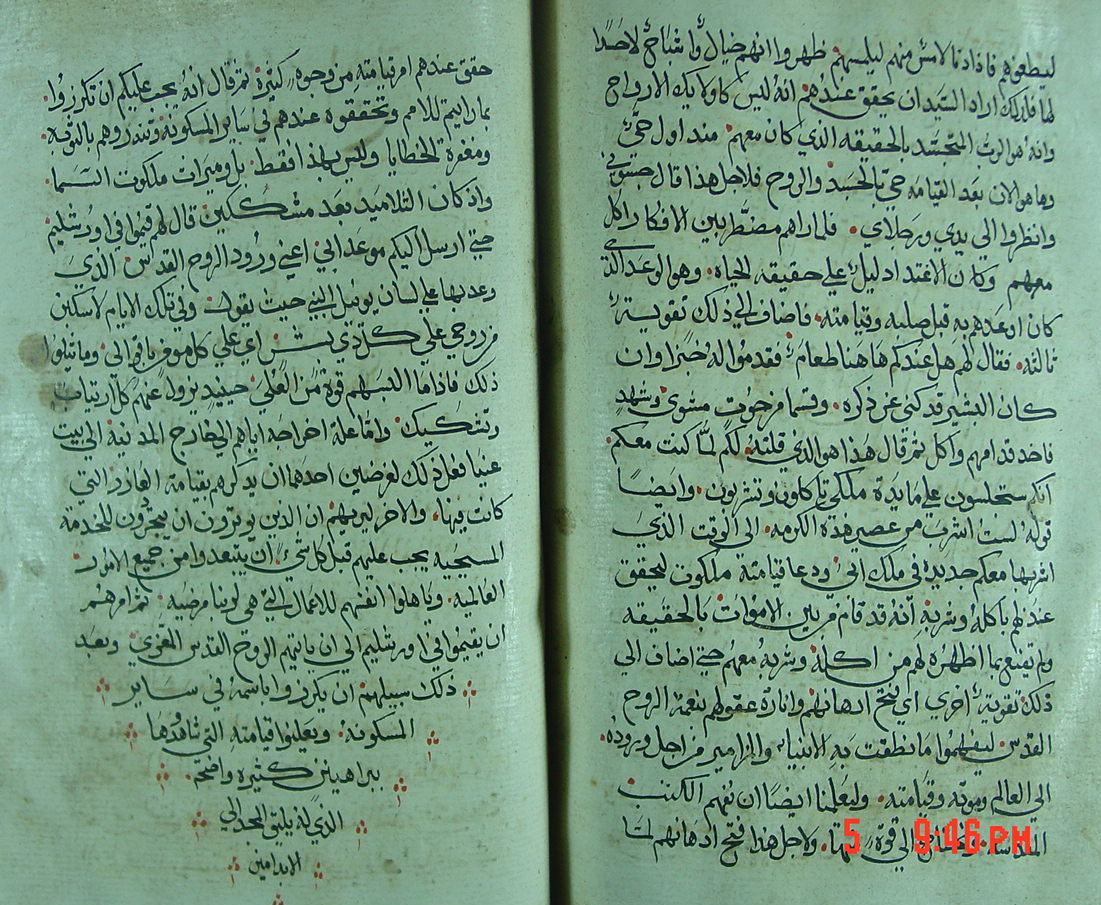 ليطغوهم فاذا دنا الانس منهم ليلمسهم ظهروا انهم خيال واشباح لاصدا
لها فلذلك اراد السيد ان يحقق عندهم انه ليس كاولايك الارواح
وانه هو الرب المتجسد بالحقيقه الذي كان معهم منذ اول حتى
وها هو الان بعد القيامه حي بالجسد والروح فلاجل هذا قال جسوني
وانظروا الي يدي ورجلاي فلما راهم مضطربين الافكار اكل
معهم وكان الاغتدا دليل علي حقيقه الحياه وهو الوعد الذ
كان اوعدهم به قبل صلبه وقيامته فاضاف الي ذلك تقوية
ثالثه فقال لهم هل عندكم هاهنا طعام فقدموا له خبزا وان
كان البشير قد كني عن ذكره وقسما من حوت مشوي وشهد
فاخد قدامهم واكل ثم قال هذا هو الذي قلته لكم لما كنت معكم
انكم ستجلسون علي مايدة ملكي تاكلون وتشربون وايضا
قوله لست اشرب من عصير هذه الكرمه الي الوقت الذي
اشربها معكم جديدة في ملك ابي ودعا قيامته ملكوت ليحقق
عندهم باكله وشربه انه قد قام من بين الاموات بالحقيقه
ولم يقنع بما اظهره لهم من اكله وشربه معهم حتي اضاف الي
ذلك تقوية اخري اي فتح ادهانهم وانارة عقولهم بنعمة الروح
القدس ليفهموا ما نطقت به الانبيا والمزامير من اجل وروده
الي العالم وموته وقيامته وليعلمنا ايضا ان تفهم الكتب
المقدسه الي قوة ولاجل هذا فتح ادهانهم لما
5 9:46 PM
حقق عندهم امر قيامته من وجوه كثيرة ثم قال انه يجب عليكم ان تكرزوا
بما رايتم للامم وتحققوه عندهم في ساير المسكونه وتنذروهم بالتوبه
ومغفرة الخطايا وليس بهذا فقط بل وميراث ملكوت السما
واذ كان التلاميد بعد مشككين قال لهم اقيموا في اورشليم
حتي ارسل اليكم موعد ابي اعني ورود الروح القدس الذي
وعد بها علي لسان يوئيل النبي حيث يقول وفي تلك الايام لاسكبن
من روحي علي كل ذي بشر اي علي كل مومن باقوالي وما تيلوا
ذلك فاذا ما البسهم قوة من العلي حينيد يزول عنهم كل ارتياب
وتشكيك واما علة اخراجه اياهم الي خارج المدينة الي بيت
عنيا فعل ذلك لغرضين احدهما ان يدكرهم بقيامة العازر التي
كانت فيها والاخر ليريهم ان الذين يوترون ان يتجردون للخدمة
المسيحيه يجب عليهم قبل كل شي ان يتبعدوا من جميع الامور
العالميه وياهلوا انفسهم للاعمال التي هي لربنا مرضيه ثم امرهم
ان يقيموا في اورشليم الي ان ياتيهم الروح القدس المعزي وبعد
ذلك سبيلهم ان يكرزوا باسمه في ساير
المسكونه ويعلنوا قيامته التي شاهدها
ببراهين كثيره واضحه
الذي له يليق المجد الي
الابد امين